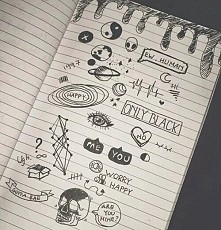 EW... HUMAN
1997
Hi
HAPPY
ONLY BLACK
ME YOU
?
Ugh.
WORRY
HAPPY
ARE
YOU
MINE?